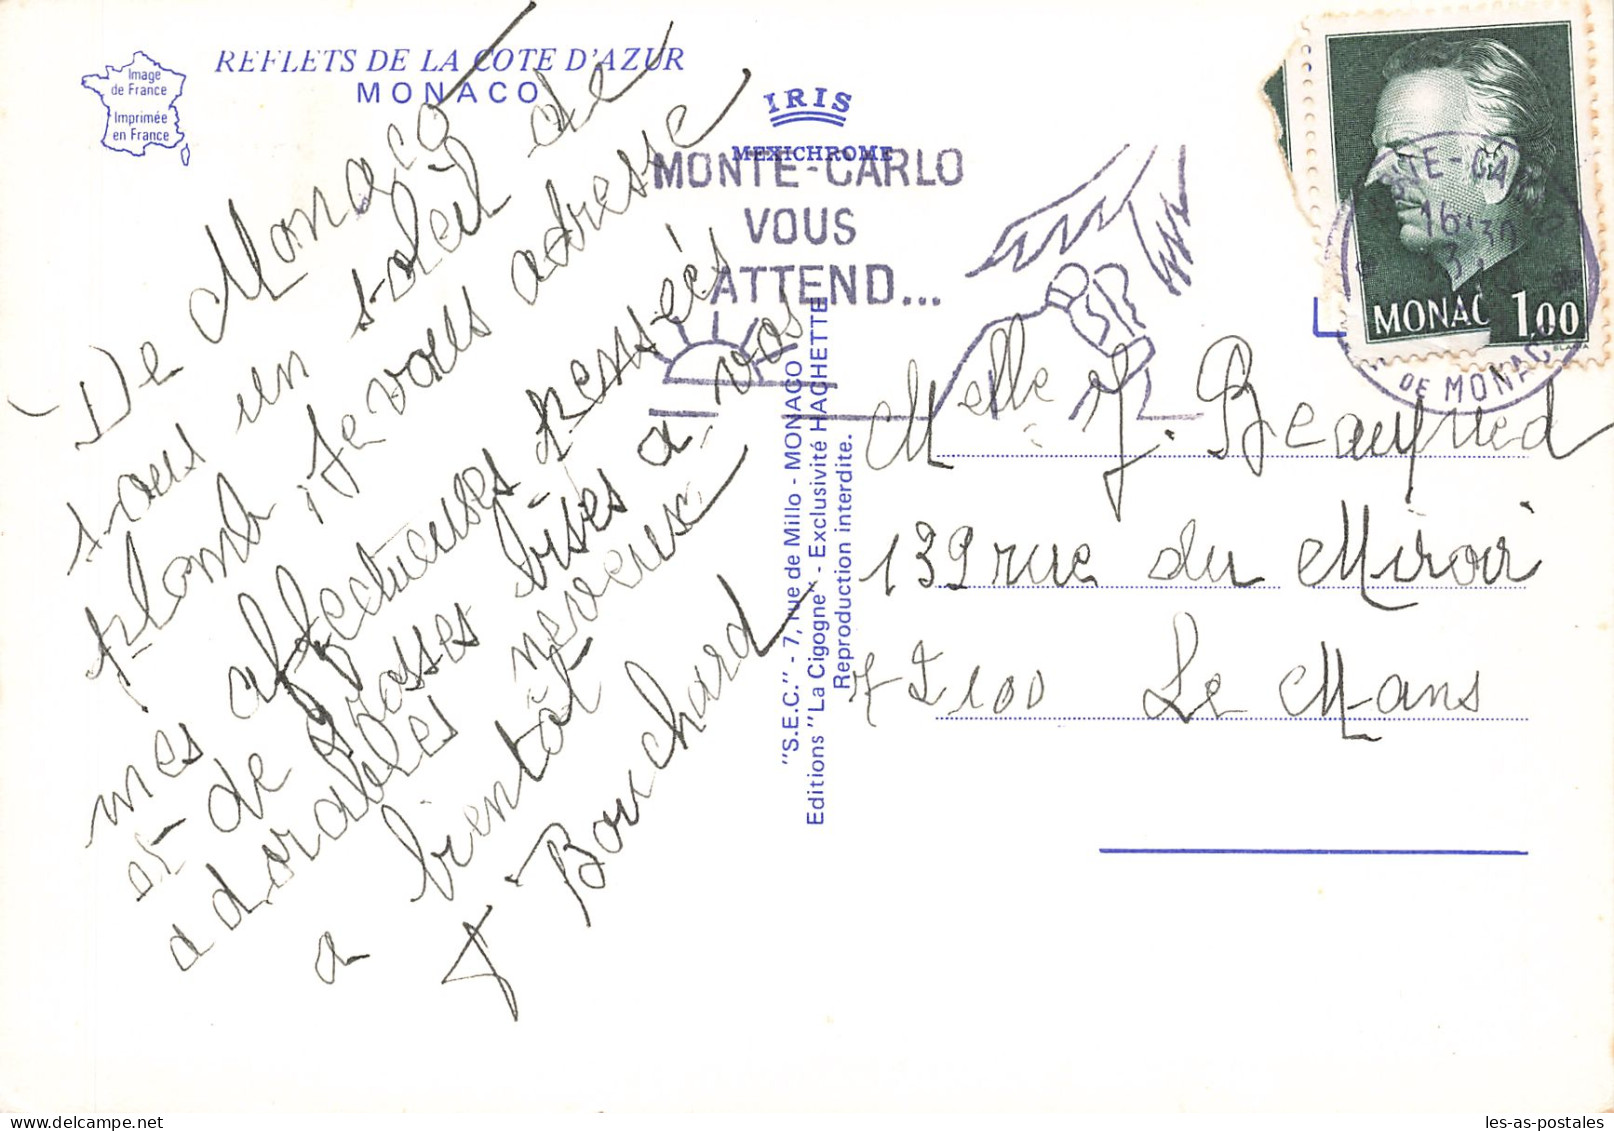 Image
de France
Imprimée
en France
REFLETS DE LA COTE D'AZUR
MONACO
IRIS
MEXICHROME
MONTE-CARLO
VOUS
ATTEND...
MONACO 1.00
16 30
DE MONACO
De Monaco
sous un soleil de
plomb, je vous adresse
mes affectueuses pensées
et de grosses bises a vos
adorables neveux
a bientôt
J Bouchard
"S.E.C." - 7, rue de Millo - MONACO
Editions "La Cigogne" - Exclusivité HACHETTE
Reproduction interdite.
Melle J. Beaufred
139 rue du Miroir
72100 Le Mans
les-as-postales